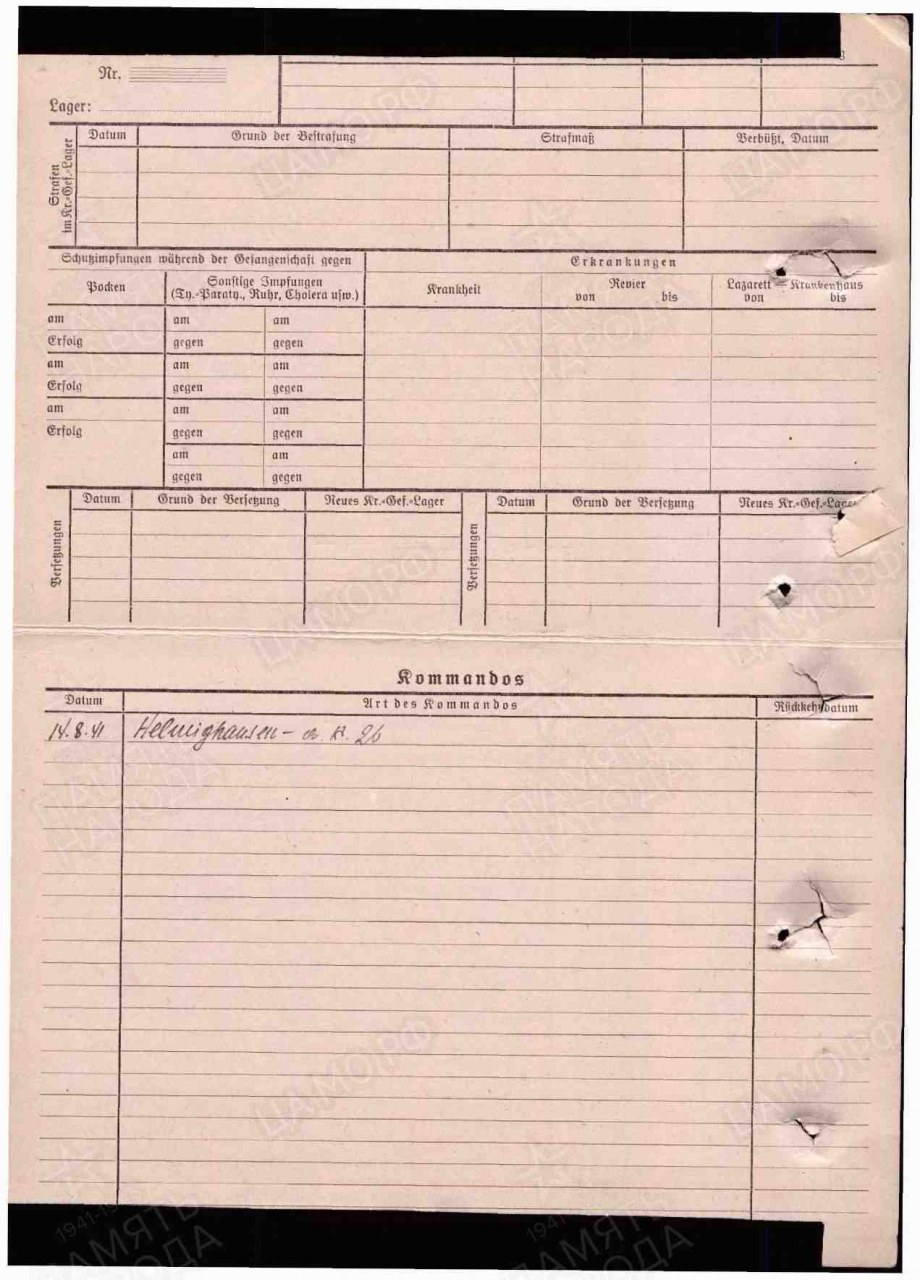 Nr.
Lager:
Strafen im Kr.-Gef.-Lager
Datum Grund der Bestrafung Strafmaß Verbüßt, Datum
Schutzimpfungen während der Gefangenschaft gegen Erkrankungen
Pocken Sonstige Impfungen (Ty.-Paraty., Ruhr, Cholera usw.) Krankheit Revier von bis Lazarett — Krankenhaus von bis
am am am
Erfolg gegen gegen
am am am
Erfolg gegen gegen
am am am
Erfolg gegen gegen
am am
gegen gegen
Versetzungen Datum Grund der Versetzung Neues Kr.-Gef.-Lager Versetzungen Datum Grund der Versetzung Neues Kr.-Gef.-Lager
Kommandos
Datum Art des Kommandos Rückkehrdatum
14.8.41 Helmighausen – 26
ЦАМО.РФ
ПАМЯТЬ
НАРОДА